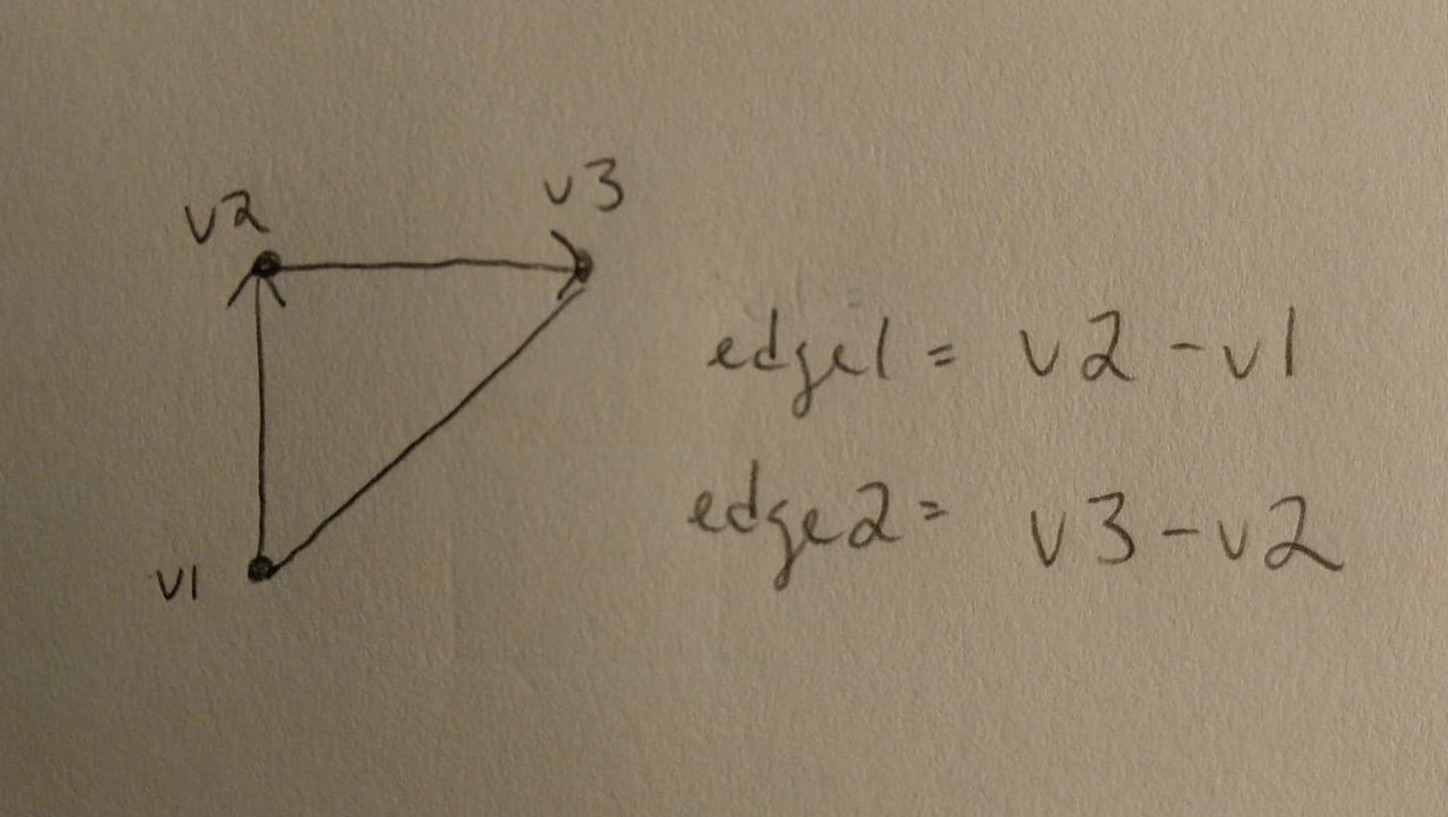 v2
v3
v1
edge1 = v2 - v1
edge2 = v3 - v2